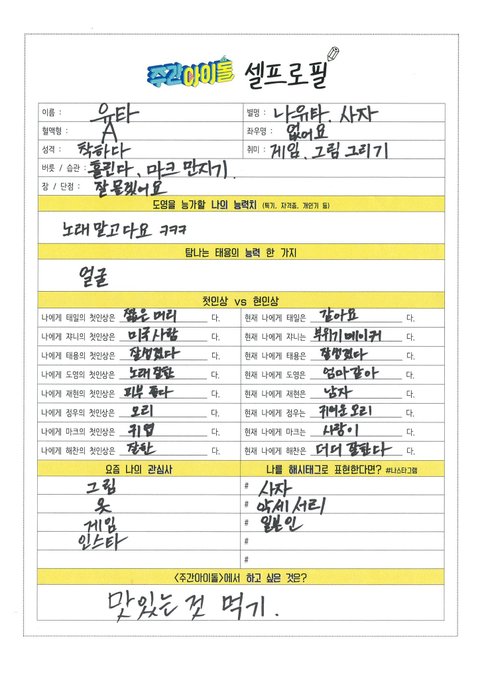 주간아이돌 셀프로필
이름 : 유타 별명 : 나유타. 사자
혈액형 : A 좌우명 : 없어요
성격 : 착하다 취미 : 게임, 그림 그리기
버릇 / 습관 : 흘린다, 마크 만지기.
장 / 단점 : 잘 몰겠어요
도영을 능가할 나의 능력치 (특기, 자격증, 개인기 등)
노래 말고 다요 ㅋㅋㅋ
탐나는 태용의 능력 한 가지
얼굴
첫인상 vs 현인상
나에게 태일의 첫인상은 짧은 머리 다. 현재 나에게 태일은 같아요 다.
나에게 쟈니의 첫인상은 미국 사람 다. 현재 나에게 쟈니는 부위기 메이커 다.
나에게 태용의 첫인상은 잘생겼다 다. 현재 나에게 태용은 잘생겼다 다.
나에게 도영의 첫인상은 노래 잘한 다. 현재 나에게 도영은 엄마 같아 다.
나에게 재현의 첫인상은 피부 좋다 다. 현재 나에게 재현은 남자 다.
나에게 정우의 첫인상은 오리 다. 현재 나에게 정우는 귀여운 오리 다.
나에게 마크의 첫인상은 귀엽 다. 현재 나에게 마크는 사랑이 다.
나에게 해찬의 첫인상은 잘한 다. 현재 나에게 해찬은 더 더 잘한다 다.
요즘 나의 관심사 나를 해시태그로 표현한다면? #나스타그램
그림 # 사자
옷 # 악세서리
게임 # 일본인
인스타 #
#
<주간아이돌>에서 하고 싶은 것은?
맛있는 것 먹기.